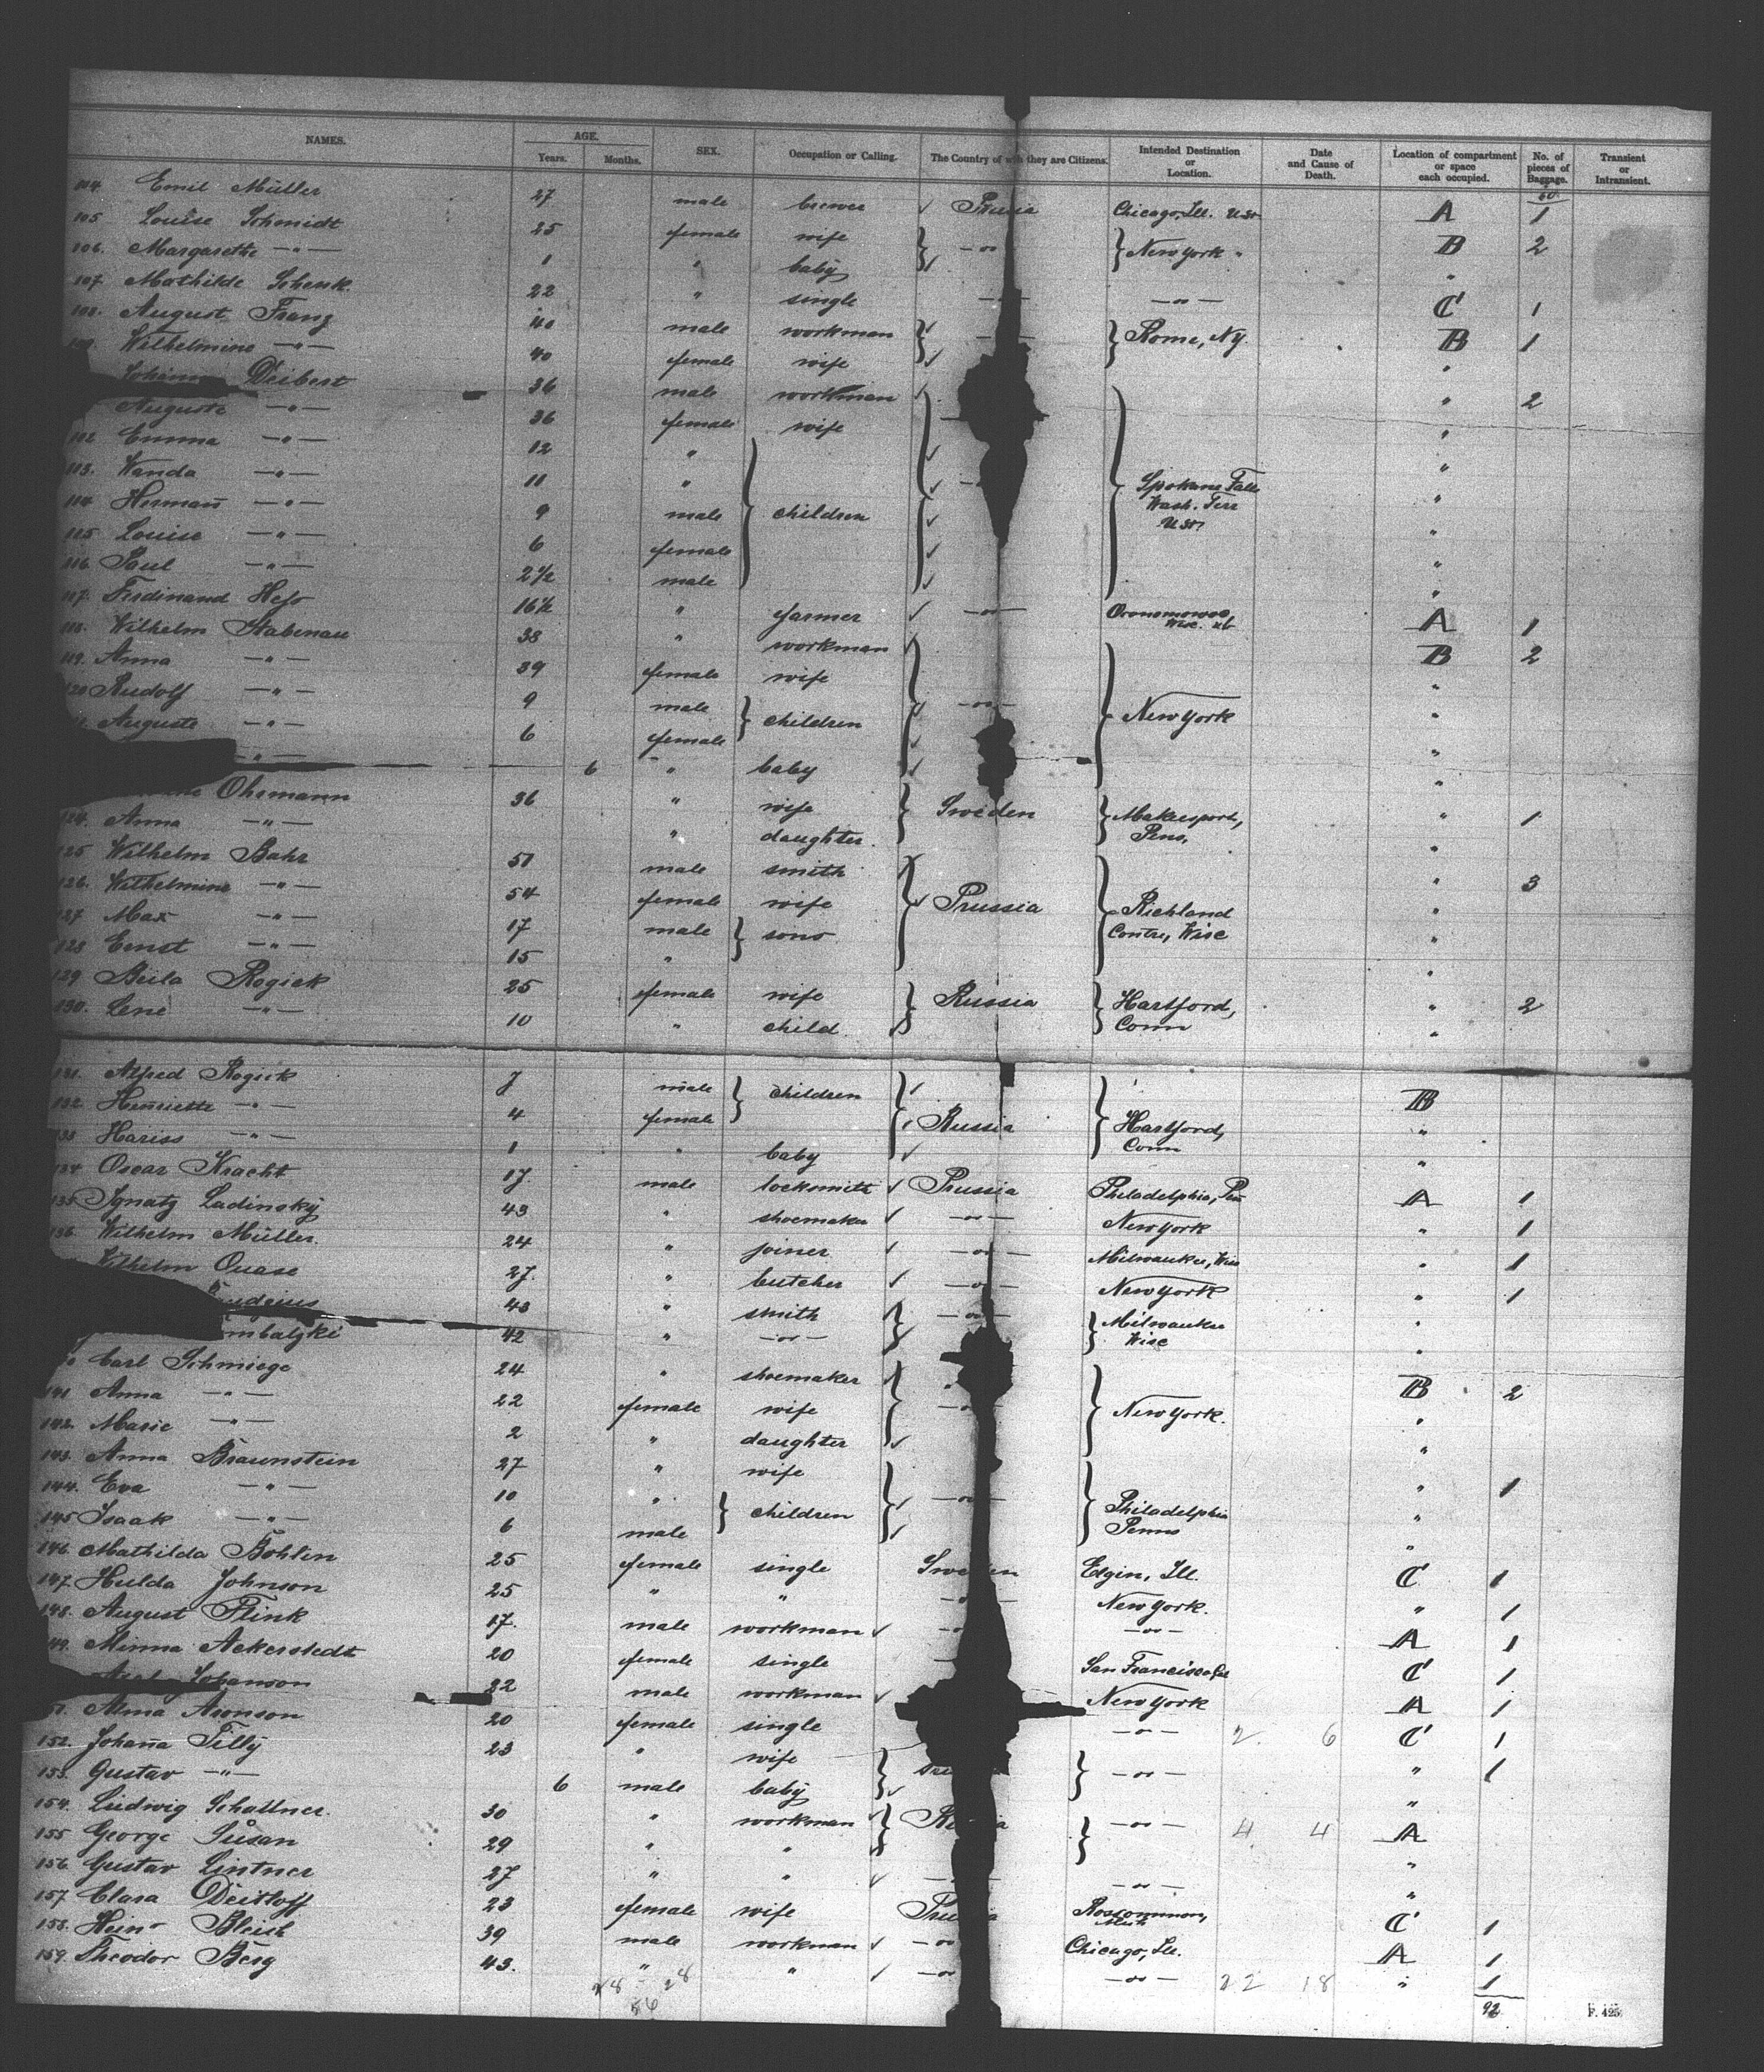 NAMES. AGE. Years. Months. SEX. Occupation or Calling. The Country of wh they are Citizens. Intended Destination or Location. Date and Cause of Death. Location of compartment or space each occupied. No. of pieces of Baggage. Transient or Intransient.
104. Emil Müller 27 male brewer Prussia Chicago, Ill. A 1
105 Louise Schmidt 25 female wife —"— New York " B 2
106. Margarethe —"— 1 " baby "
107. Mathilde Schenk. 22 " single —"— —"— C 1
108. August Franz 40 male workman —"— Rome, NY. B 1
109. Wilhelmine —"— 40 female wife "
Deibert 36 male workman " 2
Auguste —"— 36 female wife "
Emma —"— 12 " children "
113. Wanda —"— 11 " Spokane Falls Wash. Terr "
114 Hermañ —"— 9 male "
115 Louise —"— 6 female "
116. Paul —"— 2½ male "
117. Ferdinand Hess 16½ " farmer —"— Oconomowoc Wisc. A 1
118. Wilhelm Stabenau 38 " workman B 2
119. Anna —"— 39 female wife "
120 Rudolf —"— 9 male children —"— New York "
Auguste —"— 6 female "
—"— 6 " baby "
Ohrmann 36 " wife Sweden Makeesport, Penn. " 1
124. Anna —"— " daughter. "
125 Wilhelm Bahr 51 male smith " 3
126. Wilhelmine —"— 54 female wife Prussia Richland Centre, Wisc "
127 Max —"— 17 male sons "
128 Ernst —"— 15 " "
129 Beila Rogick 25 female wife Russia Hartford, Conn " 2
130. Lene —"— 10 " child. "
131. Alfred Rogick 7 male children B
132. Henriette —"— 4 female Russia Hartford, Conn "
133 Hariss —"— 1 " baby "
134 Oscar Kracht 17 male locksmith Prussia Philadelphia, Pen A 1
135 Ignatz Ladinsky 43 " shoemaker —"— New York " 1
136. Wilhelm Müller. 24 " joiner —"— Milwaukee, Wisc " 1
Wilhelm Quase 27. " butcher —"— New York " 1
43 " smith —"— Milwaukee Wisc "
42 " —"— "
Carl Schmiege 24 " shoemaker B 2
141. Anna —"— 22 female wife —"— New York. "
142. Marie —"— 2 " daughter "
143. Anna Braunstein 27 " wife " 1
144. Eva —"— 10 " children —"— Philadelphia Penns "
145 Isaak —"— 6 male "
146. Mathilda Bohlin 25 female single Sweden Edgin, Ill. C 1
147. Hulda Johnson 25 " " New York. " 1
148. August Flink 17. male workman —"— A 1
149. Minna Ackerstedt 20 female single San Francisco Cal C 1
Johanson 22 male workman New York A 1
Alma Aronson 20 female single —"— 2. 6 C 1
152. Johaña Tilly 23 " wife —"— " 1
153. Gustav —"— 6 male baby "
154. Ludwig Schattner. 30 " workman —"— 4 4 A
155 George Susan 29 " " "
156. Gustav Lintner 27 " " —"— "
157. Clara Deitloff 23 female wife Prussia Roscommon, Mich C 1
158. Heinr Bleich 39 male workman —"— Chicago, Ill. A 1
159. Theodor Berg 43. " " —"— —"— 22 18 " 1
28 - 28
56
92
F. 425.